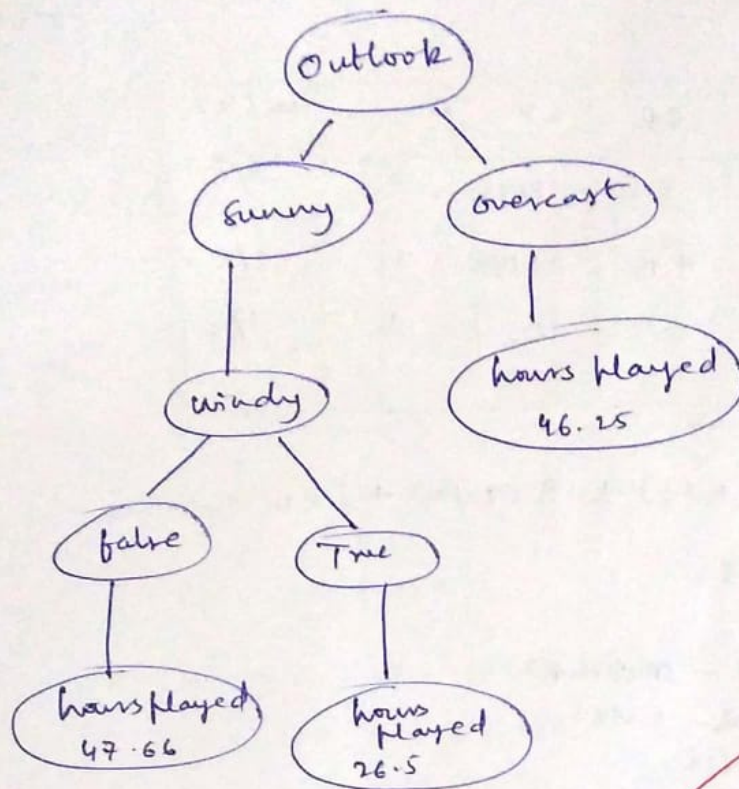 Outlook
sunny
overcast
windy
hours played
46.25
false
True
hours played
47.66
hours
played
26.5